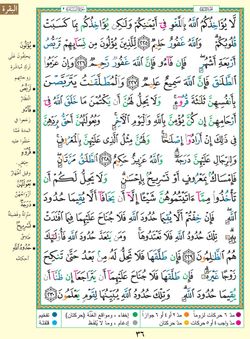 البقرة
لَّا يُؤَاخِذُكُمُ ٱللَّهُ بِٱللَّغْوِ فِىٓ أَيْمَٰنِكُمْ وَلَٰكِن يُؤَاخِذُكُم بِمَا كَسَبَتْ
قُلُوبُكُمْ ۗ وَٱللَّهُ غَفُورٌ حَلِيمٌ ٢٢٥ لِّلَّذِينَ يُؤْلُونَ مِن نِّسَآئِهِمْ تَرَبُّصُ
أَرْبَعَةِ أَشْهُرٍ ۖ فَإِن فَآءُو فَإِنَّ ٱللَّهَ غَفُورٌ رَّحِيمٌ ٢٢٦ وَإِنْ عَزَمُوا۟
ٱلطَّلَٰقَ فَإِنَّ ٱللَّهَ سَمِيعٌ عَلِيمٌ ٢٢٧ وَٱلْمُطَلَّقَٰتُ يَتَرَبَّصْنَ
بِأَنفُسِهِنَّ ثَلَٰثَةَ قُرُوٓءٍ ۚ وَلَا يَحِلُّ لَهُنَّ أَن يَكْتُمْنَ مَا خَلَقَ ٱللَّهُ فِىٓ
أَرْحَامِهِنَّ إِن كُنَّ يُؤْمِنَّ بِٱللَّهِ وَٱلْيَوْمِ ٱلْءَاخِرِ ۚ وَبُعُولَتُهُنَّ أَحَقُّ بِرَدِّهِنَّ
فِى ذَٰلِكَ إِنْ أَرَادُوٓا۟ إِصْلَٰحًا ۚ وَلَهُنَّ مِثْلُ ٱلَّذِى عَلَيْهِنَّ
بِٱلْمَعْرُوفِ ۚ وَلِلرِّجَالِ عَلَيْهِنَّ دَرَجَةٌ ۗ وَٱللَّهُ عَزِيزٌ حَكِيمٌ ٢٢٨ ٱلطَّلَٰقُ مَرَّتَانِ ۖ
فَإِمْسَاكٌۢ بِمَعْرُوفٍ أَوْ تَسْرِيحٌۢ بِإِحْسَٰنٍ ۗ وَلَا يَحِلُّ لَكُمْ أَن
تَأْخُذُوا۟ مِمَّآ ءَاتَيْتُمُوهُنَّ شَيْـًٔا إِلَّآ أَن يَخَافَآ أَلَّا يُقِيمَا حُدُودَ
ٱللَّهِ ۖ فَإِنْ خِفْتُمْ أَلَّا يُقِيمَا حُدُودَ ٱللَّهِ فَلَا جُنَاحَ عَلَيْهِمَا فِيمَا ٱفْتَدَتْ
بِهِۦ ۗ تِلْكَ حُدُودُ ٱللَّهِ فَلَا تَعْتَدُوهَا ۚ وَمَن يَتَعَدَّ حُدُودَ ٱللَّهِ فَأُو۟لَٰٓئِكَ
هُمُ ٱلظَّٰلِمُونَ ٢٢٩ فَإِن طَلَّقَهَا فَلَا تَحِلُّ لَهُۥ مِنۢ بَعْدُ حَتَّىٰ تَنكِحَ
زَوْجًا غَيْرَهُۥ ۗ فَإِن طَلَّقَهَا فَلَا جُنَاحَ عَلَيْهِمَآ أَن يَتَرَاجَعَآ إِن ظَنَّآ أَن
يُقِيمَا حُدُودَ ٱللَّهِ ۗ وَتِلْكَ حُدُودُ ٱللَّهِ يُبَيِّنُهَا لِقَوْمٍ يَعْلَمُونَ ٢٣٠
مدّ ٦ حركات لزوماً
مدّ ٢ أو ٤ أو ٦ جوازاً
مدّ حركتان
إخفاء، ومواقع الغنّة (حركتان)
إدغام، وما لا يُلفظ
تفخيم
قلقلة
٣٦